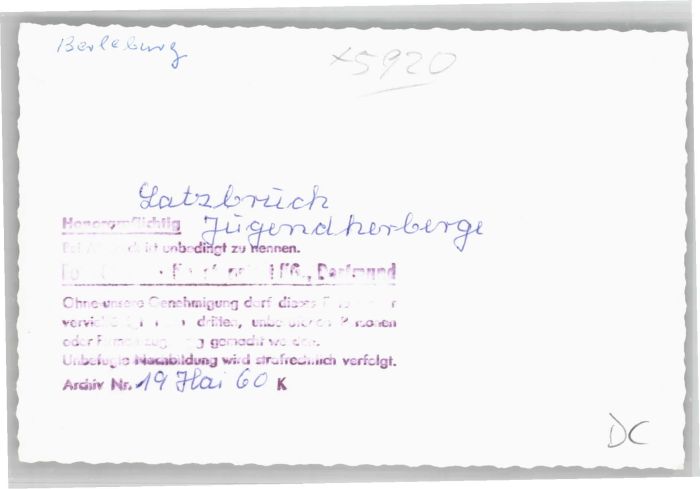 Berleburg
x5920
Latzbruch
Jugendherberge
Honorarpflichtig
Bei unbedingt zu nennen.
Dortmund
Ohne unsere Genehmigung darf dieses
dritten, Personen
oder gemacht werden.
Unbefugte Nachbildung wird strafrechtlich verfolgt.
Archiv Nr. 19 Mai 60 K
DC